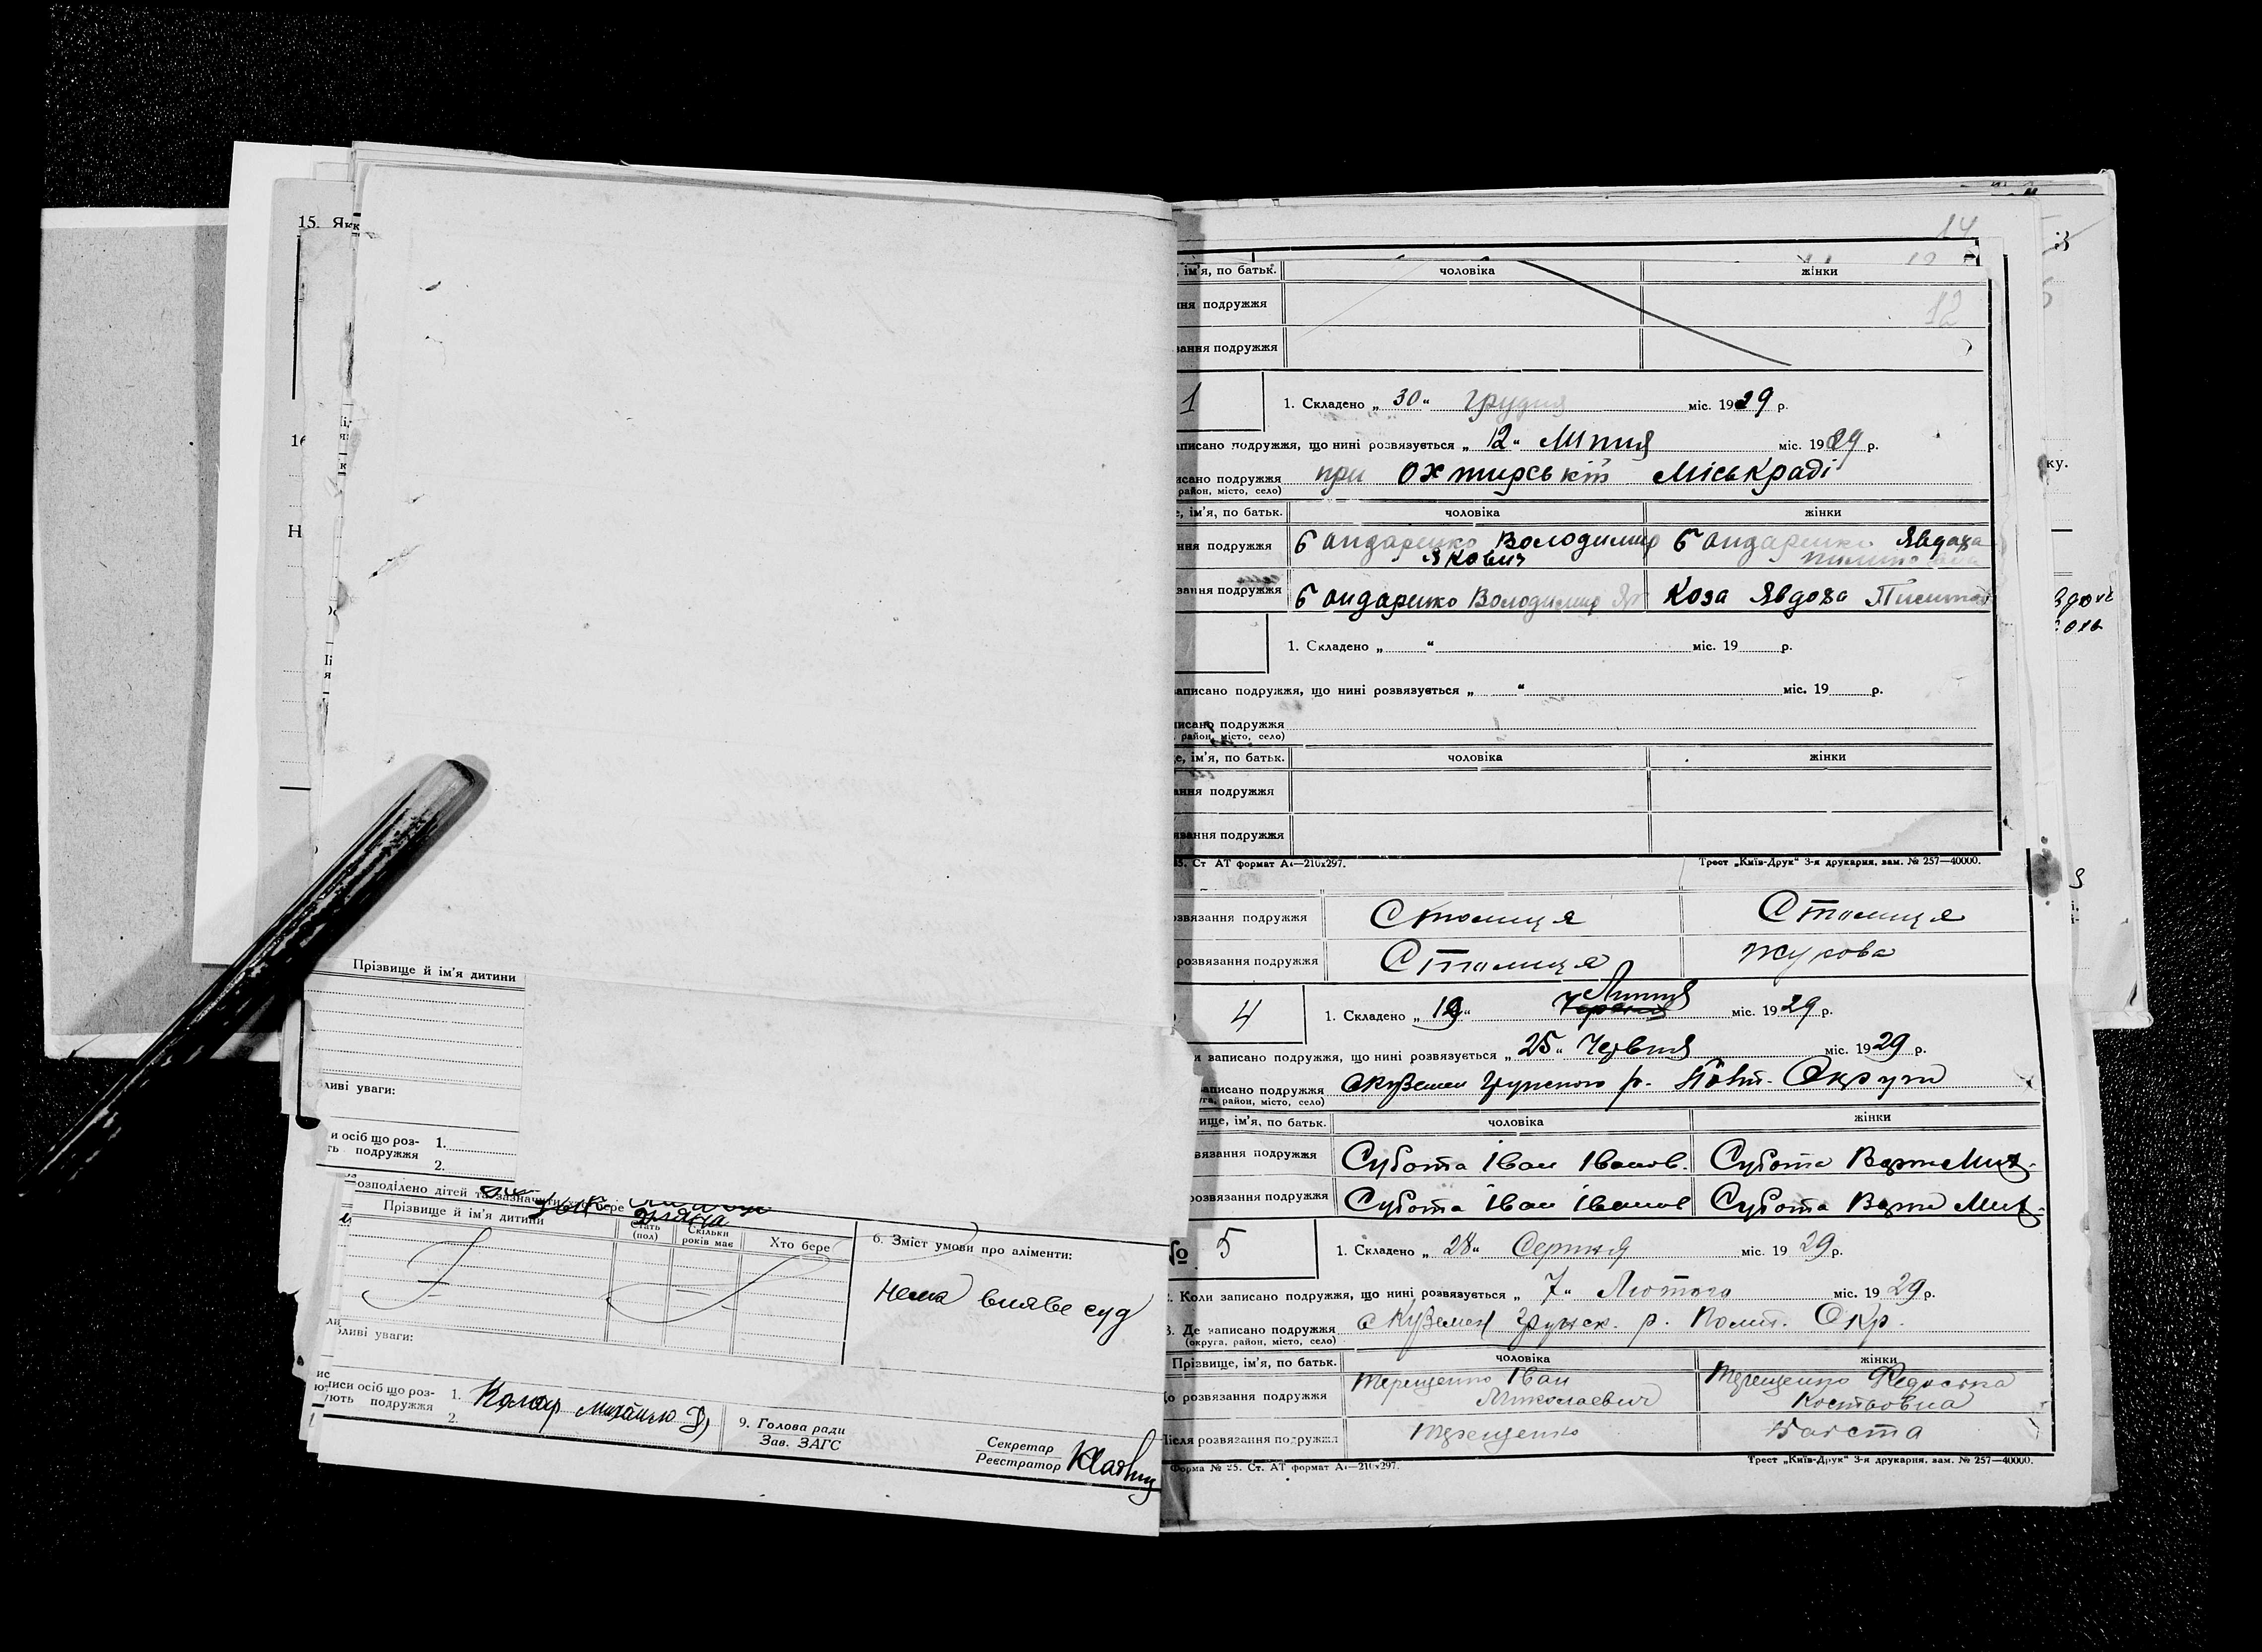 15. Як
16
Н
Прізвище й ім'я дитини
ливі уваги:
и осіб що роз-
ть подружжя
1.
2.
озподілено дітей та зазначити, хто бере
Прізвище й ім'я дитини
Стать (пол)
Скільки років має
Хто бере
6. Зміст умови про аліменти:
Нема вияве суд
ливі уваги:
писи осіб що роз-
ують подружжя
1.
2.
9. Голова ради
Зав. ЗАГС
Секретар
Реєстратор
14
, ім'я, по батьк. чоловіка жінки
12
ння подружжя
зання подружжя
1
1. Складено „ 30 “ Грудня міс. 1929 р.
аписано подружжя, що нині розвязується „ 12 “ Липня міс. 1929 р.
исано подружжя при Охтирській Міськраді
район, місто, село)
е, ім'я, по батьк. чоловіка жінки
ння подружжя Бондаренко Володимир Бондаренко Явдоха
Якович
зання подружжя Бондаренко Володимир Коза Явдоха
1. Складено „ “ міс. 19 р.
аписано подружжя, що нині розвязується „ “ міс. 19 р.
исано подружжя
район, місто, село)
е, ім'я, по батьк. чоловіка жінки
ання подружжя
язання подружжя
5. Ст АТ формат А4—210x297. Трест „Київ-Друк“ 3-я друкарня, зам. № 257—40000.
озвязання подружжя Столиця Столиця
розвязання подружжя Столиця Жукова
4
1. Складено „ 19 “ Липня міс. 1929 р.
и записано подружжя, що нині розвязується „ 25 “ Червня міс. 1929 р.
аписано подружжя с Куземен Грунського р. Полт. Округи
уга, район, місто, село)
ище, ім'я, по батьк. чоловіка жінки
звязання подружжя Субота Іван Іванов. Субота Варв Мих.
розвязання подружжя Субота Іван Іванов Субота Варв Мих.
№ 5
1. Складено „ 28 “ Серпня міс. 1929 р.
2. Коли записано подружжя, що нині розвязується „ 7 “ Лютого міс. 1929 р.
3. Де записано подружжя с Куземен Грунск. р. Полт. Окр.
(округа, район, місто, село)
Прізвище, ім'я, по батьк. чоловіка жінки
До розвязання подружжя Терещенко Іван Терещенко Федоська
Миколаевич
Після розвязання подружжя Терещенко
Форма № 25. Ст. АТ формат А4—210x297. Трест „Київ-Друк“ 3-я друкарня, зам. № 257—40000.
ку.